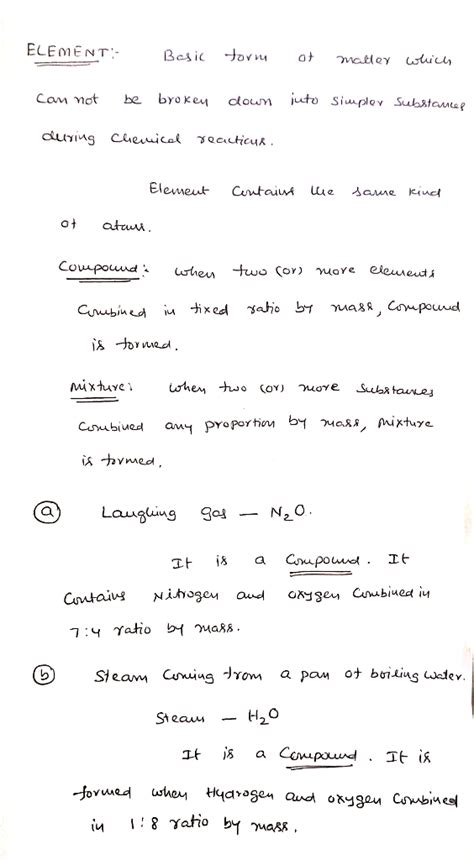 ELEMENT:- Basic form of matter which
Can not be broken down into simpler substances
during Chemical reactions.
Element Contains the same kind
of atoms.
Compound: when two (or) more elements
Combined in fixed ratio by mass, Compound
is formed.
Mixture: when two (or) more Substances
Combined any proportion by mass, Mixture
is formed.
(a) Laughing gas — N₂O.
It is a Compound. It
Contains Nitrogen and oxygen Combined in
7:4 ratio by mass.
(b) Steam Coming from a pan of boiling water.
Steam — H₂O
It is a Compound. It is
formed when Hydrogen and oxygen Combined
in 1:8 ratio by mass.